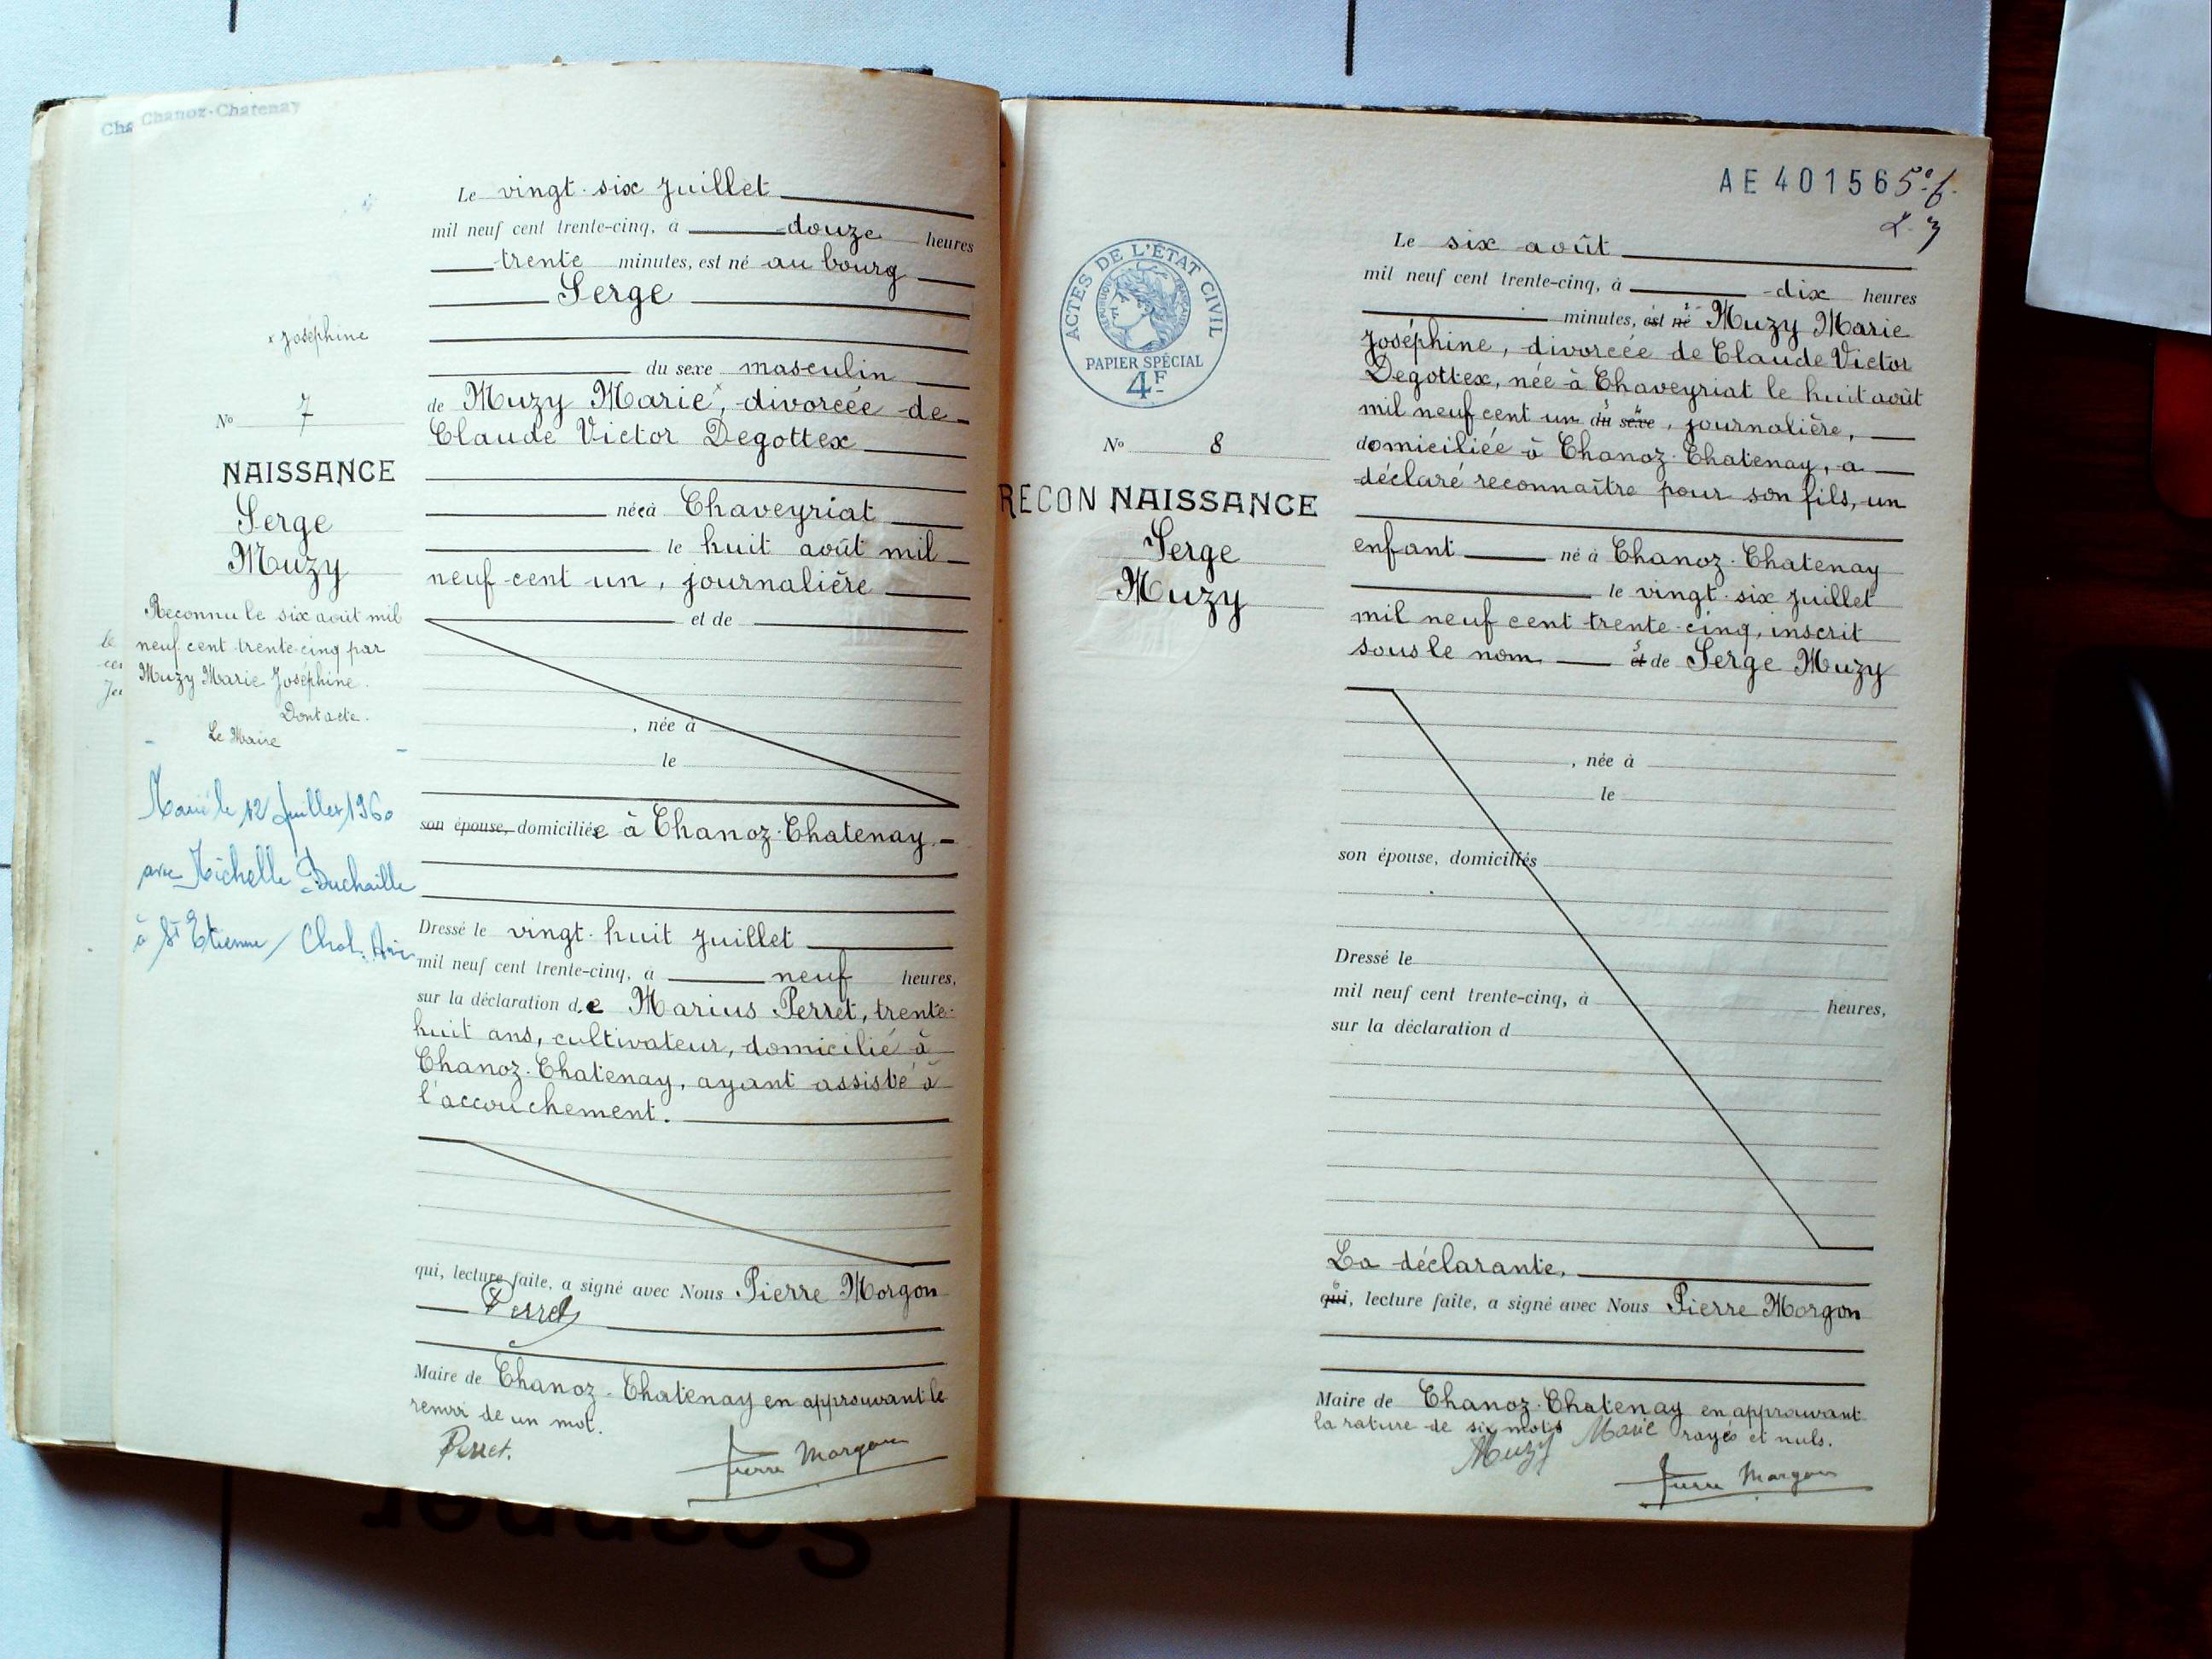 Chanoz-Chatenay
Le vingt-six Juillet
mil neuf cent trente-cinq, à douze heures
trente minutes, est né au bourg
Serge
x Joséphine
du sexe masculin
de Muzy Marie x, divorcée de
Claude Victor Degottex
née à Chaveyriat
le huit août mil
neuf cent un, journalière
et de
, née à
le
son épouse, domiciliée à Chanoz-Chatenay.
Dressé le vingt-huit Juillet
mil neuf cent trente-cinq, à neuf heures,
sur la déclaration de Marius Perret, trente-
huit ans, cultivateur, domicilié à
Chanoz-Chatenay, ayant assisté à
l'accouchement.
qui, lecture faite, a signé avec Nous Pierre Morgon
Perret
Maire de Chanoz-Chatenay en approuvant le
renvoi de un mot.
Perret. Pierre Morgon
No 7
NAISSANCE
Serge
Muzy
Reconnu le six août mil
neuf cent trente-cinq par
Muzy Marie Joséphine.
Dont acte.
Le Maire
Marié le 12 Juillet 1960
avec Michelle Duchaille
à St Etienne / Chal.
AE 40156
Le six août
mil neuf cent trente-cinq, à dix heures
minutes, est né Muzy Marie
Joséphine, divorcée de Claude Victor
Degottex, née à Chaveyriat le huit août
mil neuf cent un du sexe, journalière,
domiciliée à Chanoz-Chatenay, a
déclaré reconnaître pour son fils, un
enfant né à Chanoz-Chatenay
le vingt-six Juillet
mil neuf cent trente-cinq, inscrit
sous le nom et de Serge Muzy
, née à
le
son épouse, domiciliés
Dressé le
mil neuf cent trente-cinq, à heures,
sur la déclaration d
La déclarante,
qui, lecture faite, a signé avec Nous Pierre Morgon
Maire de Chanoz-Chatenay en approuvant
la rature de six mots rayés et nuls.
Muzy Marie
Pierre Morgon
ACTES DE L'ÉTAT CIVIL
RÉPUBLIQUE FRANÇAISE
PAPIER SPÉCIAL
4F
No 8
RECONNAISSANCE
Serge
Muzy